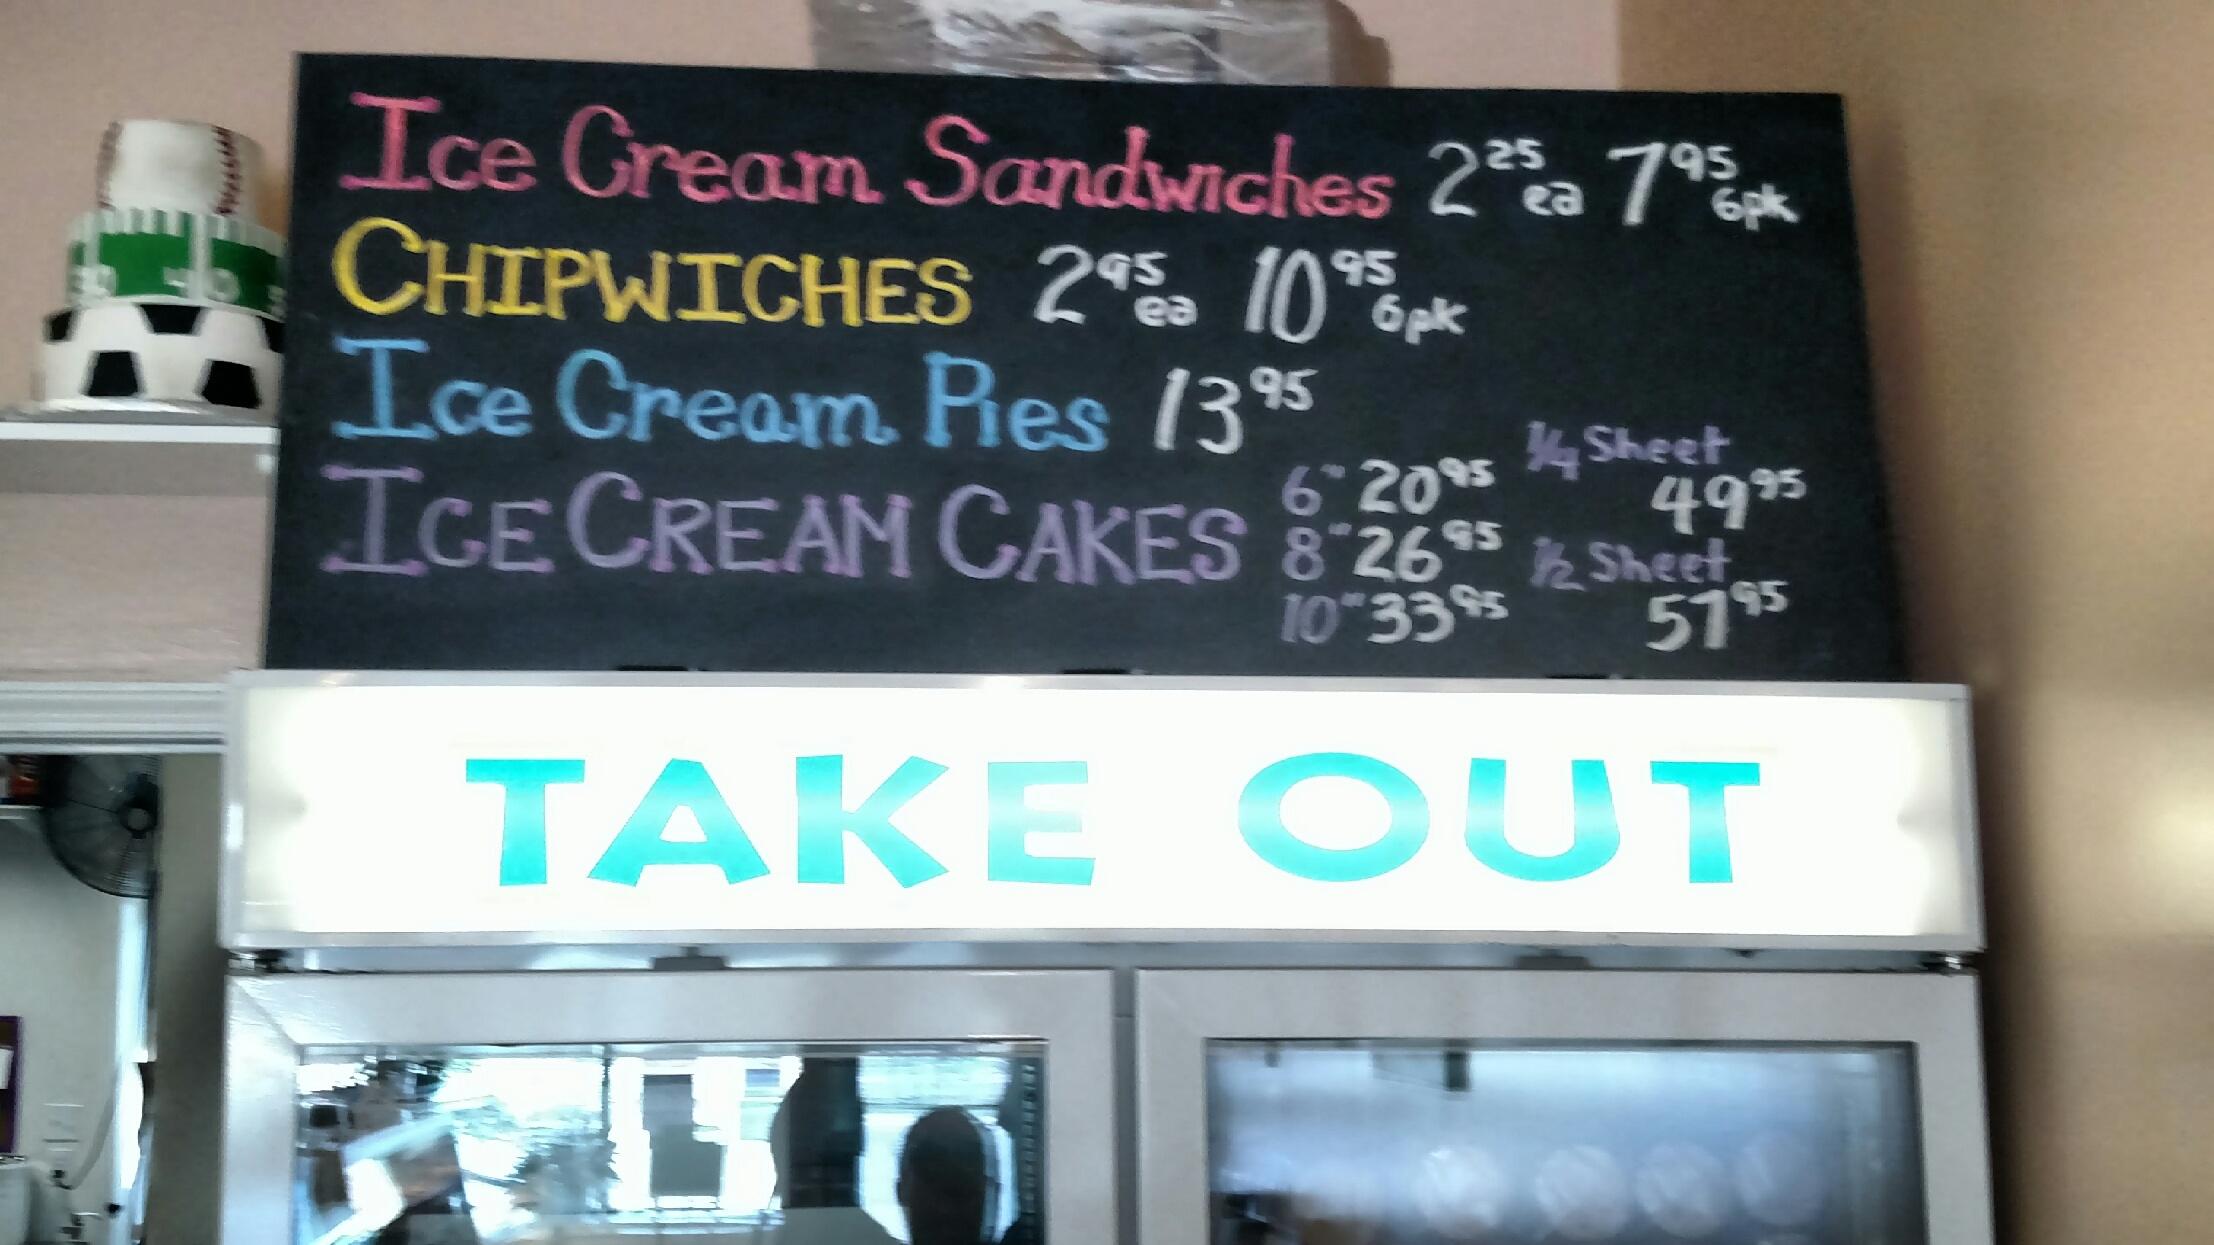 Ice Cream Sandwiches 2²⁵ ea 7⁹⁵ 6pk
CHIPWICHES 2⁹⁵ ea 10⁹⁵ 6pk
Ice Cream Pies 13⁹⁵
ICE CREAM CAKES
6" 20⁹⁵
8" 26⁹⁵
10" 33⁹⁵
1/4 Sheet
49⁹⁵
1/2 Sheet
57⁹⁵
TAKE OUT